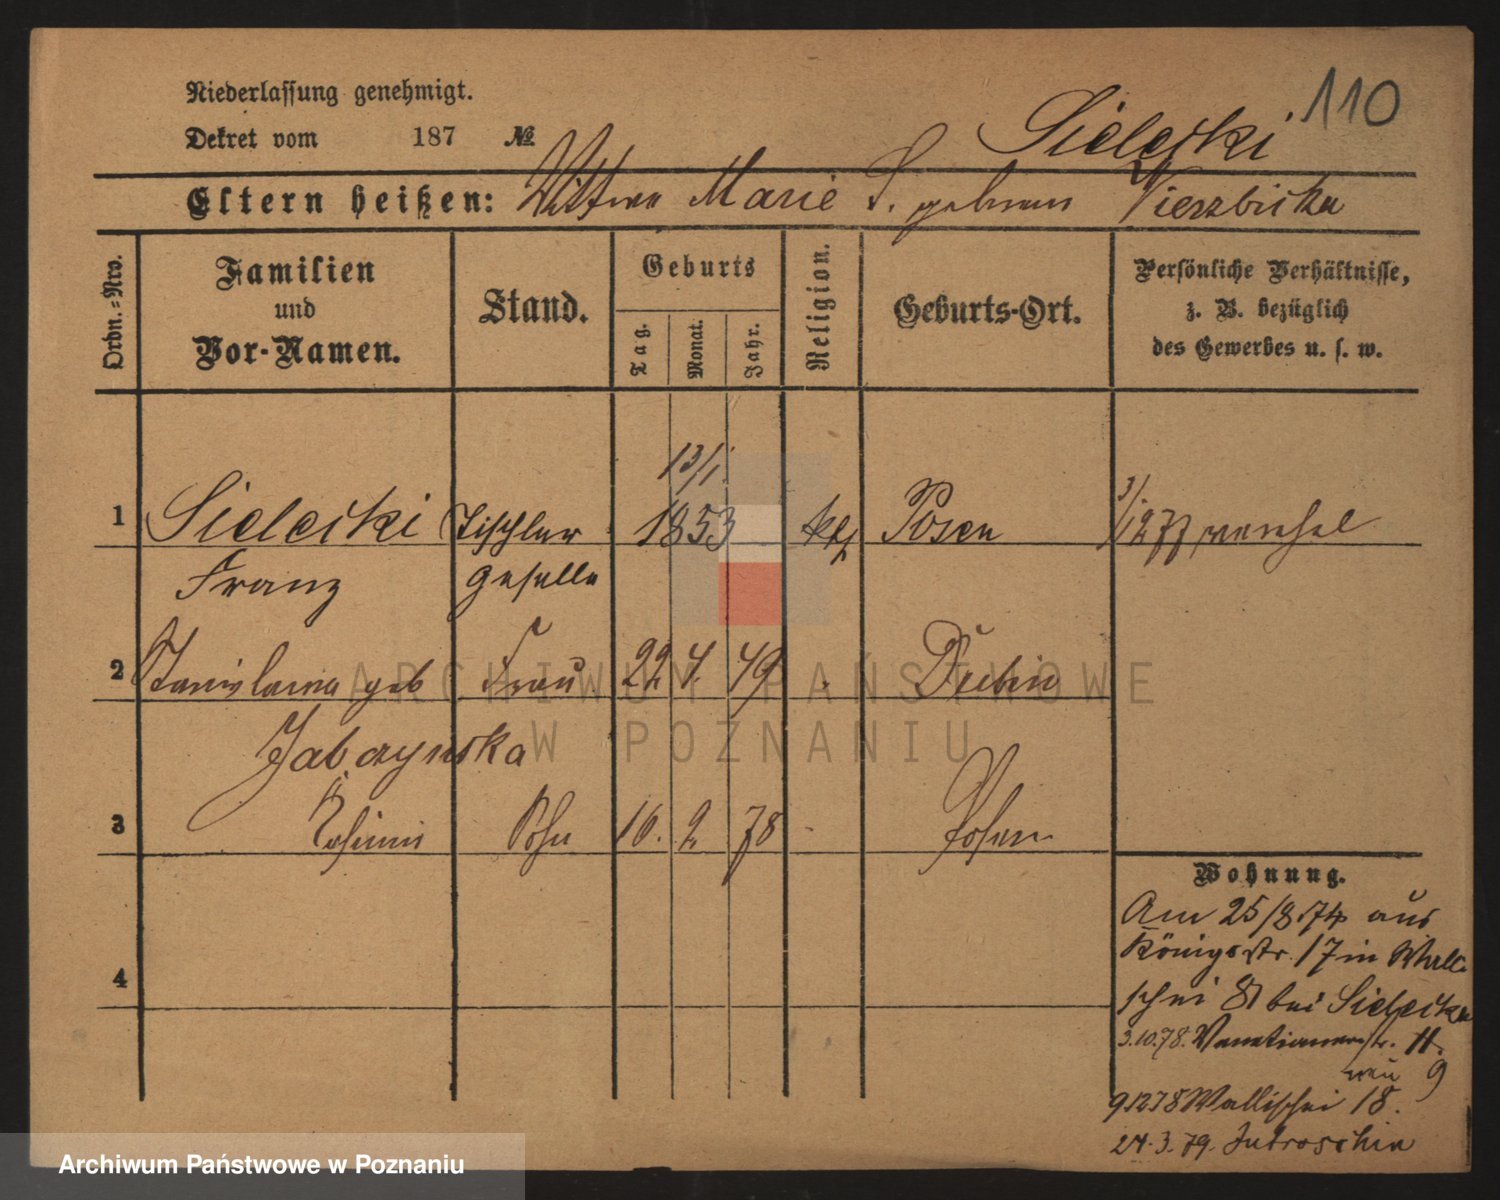 Niederlassung genehmigt.
110
Dekret vom 187 №
Sielecki
Eltern heißen: Wittwe Marie S. geborene Wierzbicka
Ordn.-Nro.
Familien
und
Vor-Namen.
Stand.
Geburts
Tag.
Monat.
Jahr.
Religion.
Geburts-Ort.
Persönliche Verhältnisse,
z. B. bezüglich
des Gewerbes u. s. w.
13/1.
1 Sielecki Tischler 1853 kth Posen 3/1277
Franz Geselle
2 Stanislawa geb Frau 22 4. 49 Dubin
3 Sohn 16. 2 78 Posen
4
Wohnung.
Am 25/8 74 aus
Königsstr. 17 in Walli
schei 81 bei Sielecka
3.10.78. Venetianerstr. 11.
neu 9
91278 Wallischei 18.
24.3.79. Jutroschin
ARCHIWUM PAŃSTWOWE
W POZNANIU
Archiwum Państwowe w Poznaniu